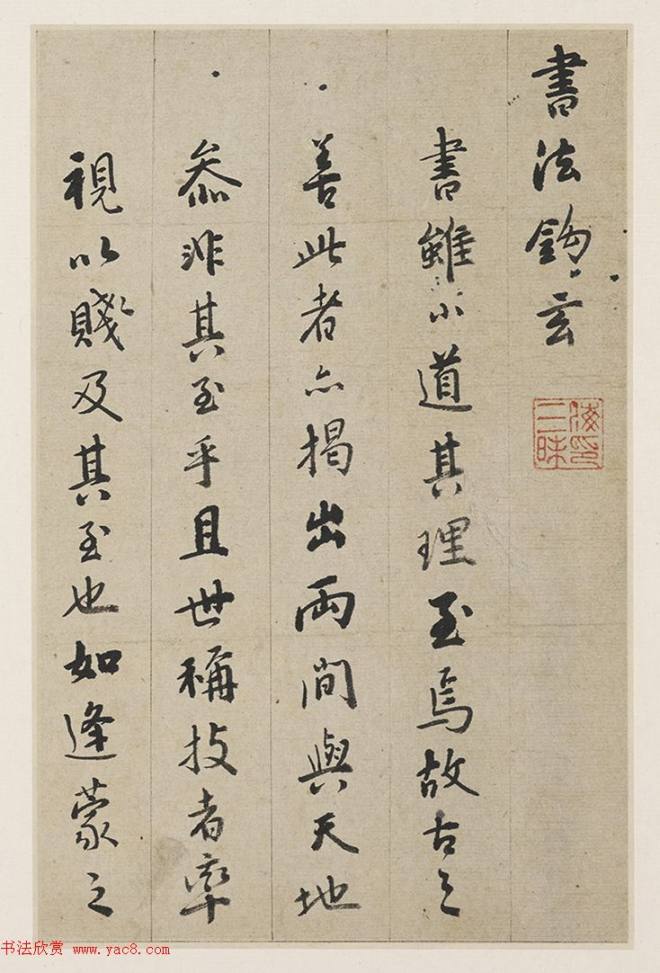 書法鈎玄
海印三昧
書雖小道其理至焉故古之
善此者亦揭出兩間與天地
叅非其至乎且世稱技者率
視以賤及其至也如逢蒙之
书法欣赏 www.yac8.com